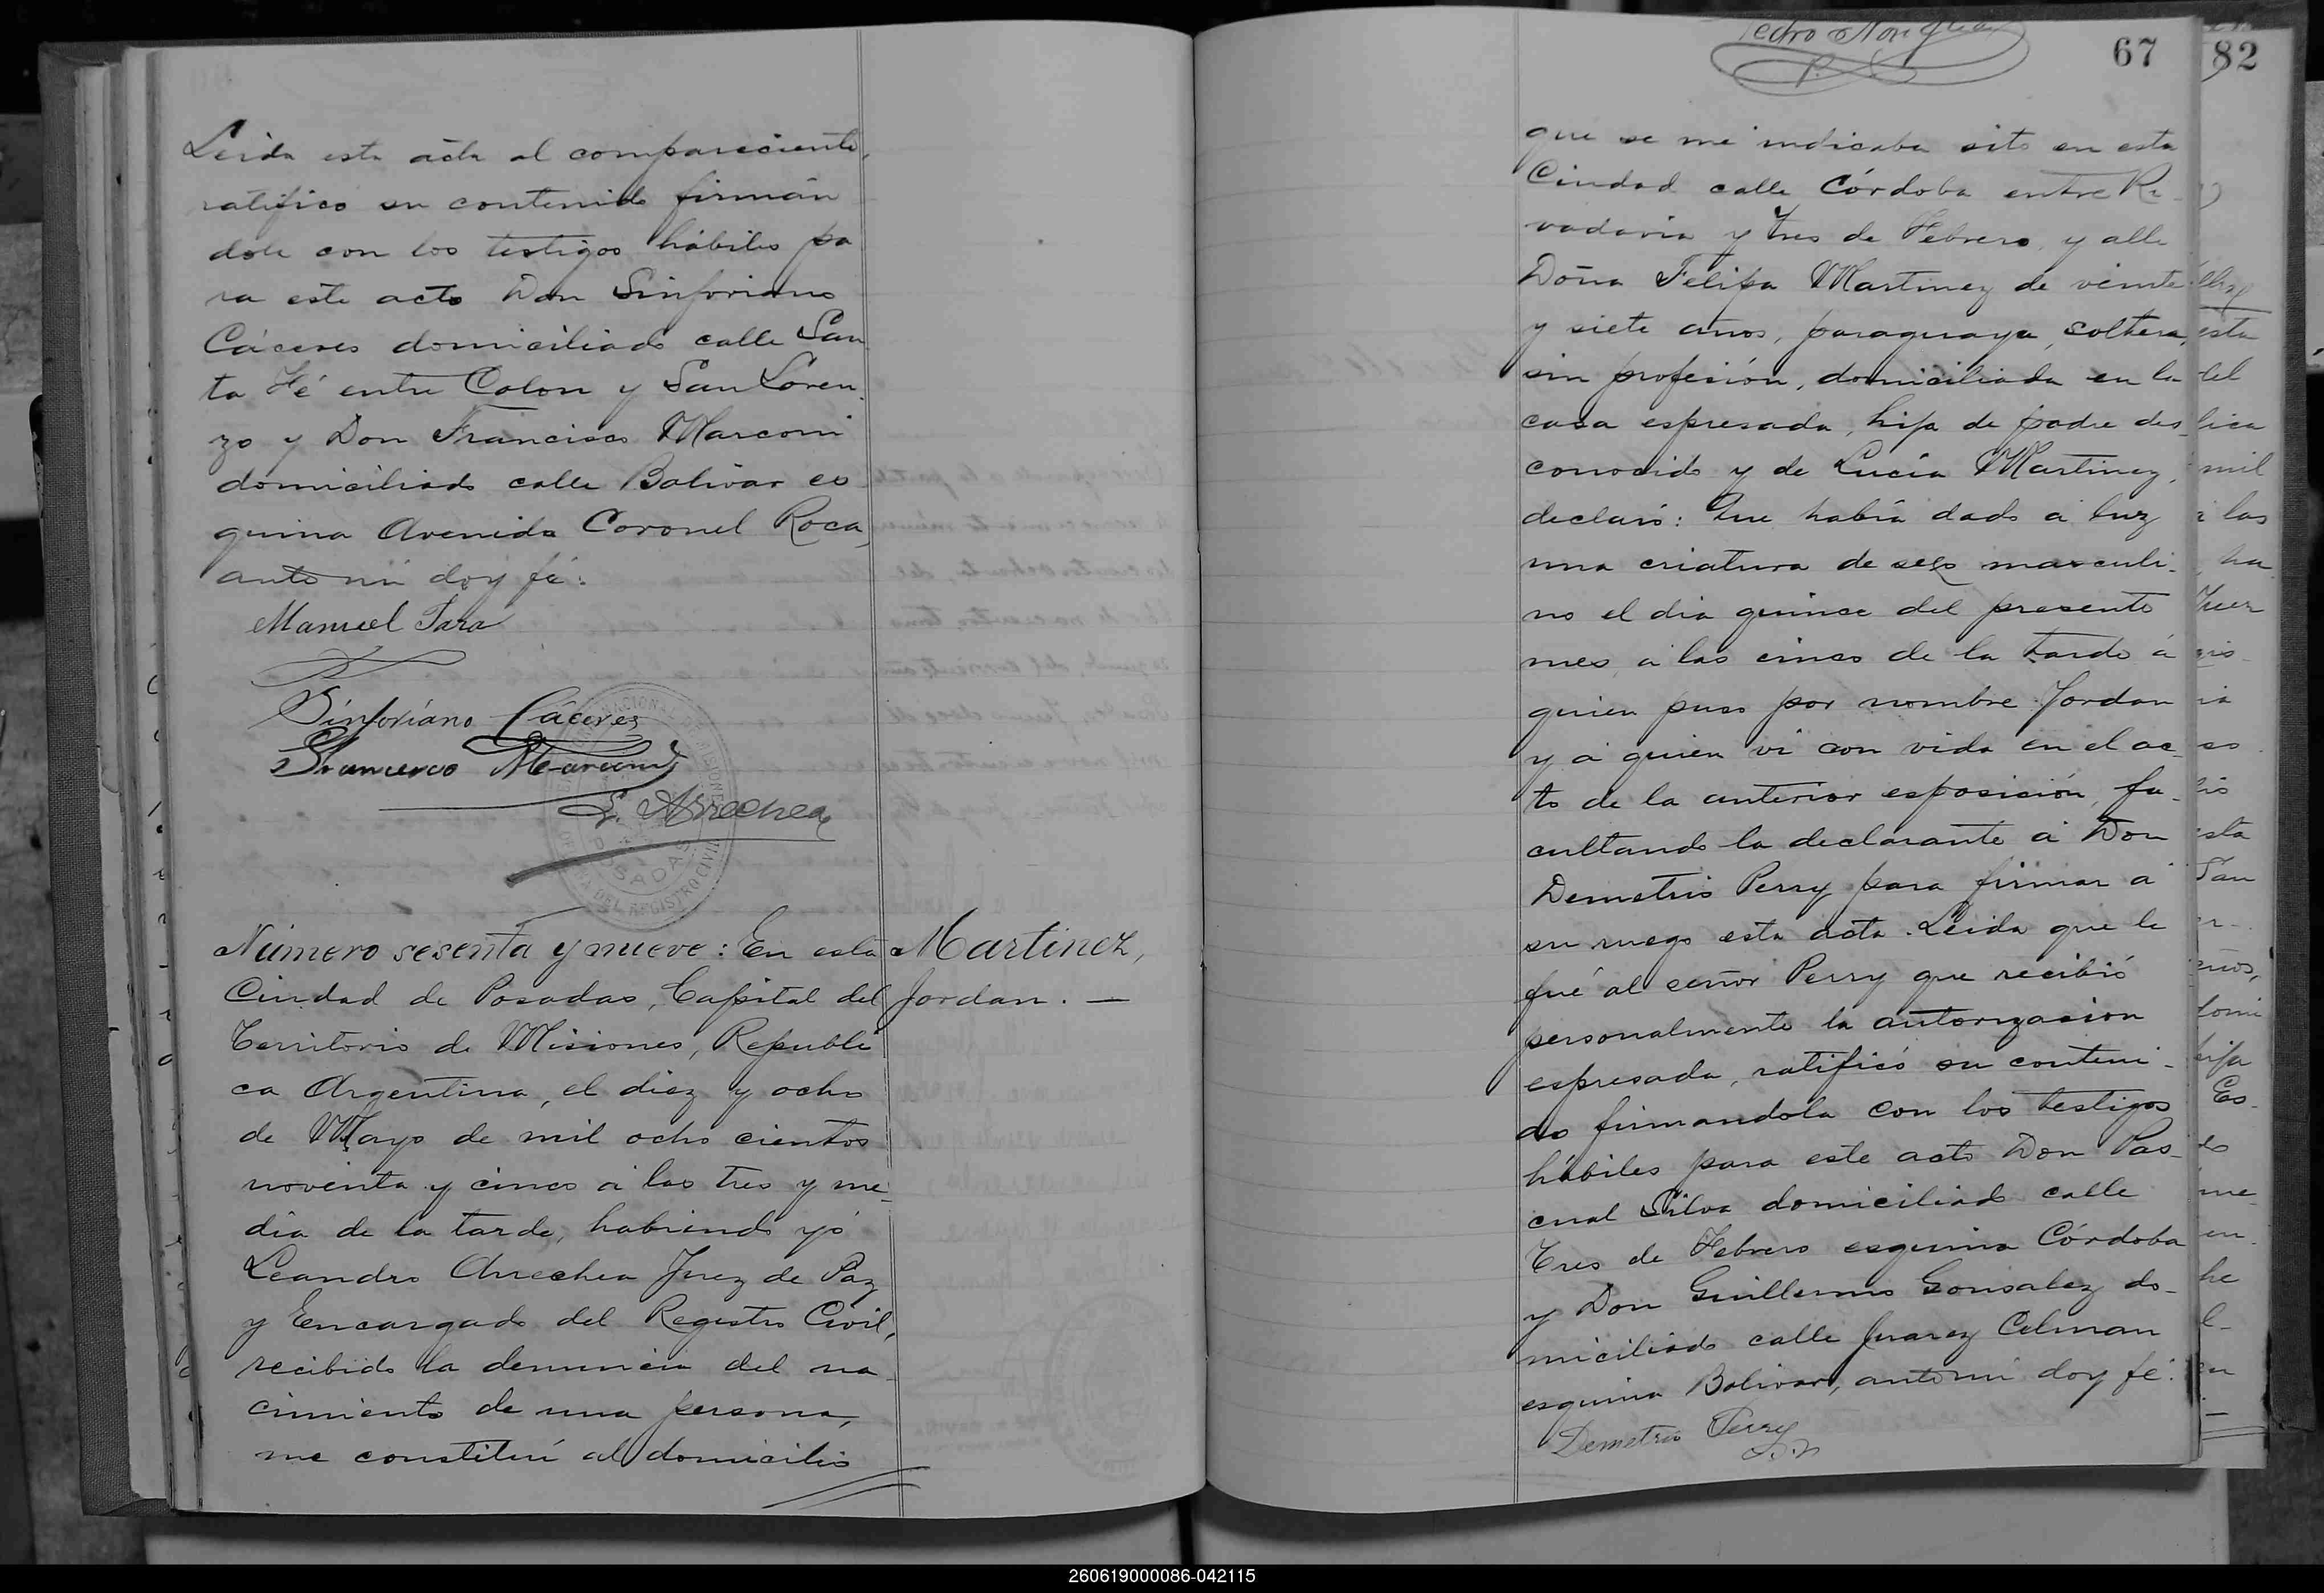 Leida esta acta al compareciente,
ratificó su contenido firmán
dole con los testigos hábiles pa
ra este acto Don Sinforiano
Cáceres domiciliado calle San
ta Fé entre Colon y San Loren
zo y Don Francisco Marconi
domiciliado calle Bolivar es
quina Avenida Coronel Roca,
ante mi doy fé:
Manuel Jara
Sinforiano Cáceres
Francisco Marconi
L. Arrechea
POSADAS
DEL REGISTRO CIVIL
Número sesenta y nueve: En esta
Ciudad de Posadas, Capital del
Territorio de Misiones, Republi
ca Argentina, el diez y ocho
de Mayo de mil ocho cientos
noventa y cinco á las tres y me_
dia de la tarde, habiendo yó
Leandro Arrechea Juez de Paz
y Encargado del Registro Civil,
recibido la denuncia del na_
cimiento de una persona,
me constituí al domicilio
Martinez,
Jordan. —
Pedro
67
que se me indicaba sito en esta
Ciudad calle Córdoba entre Ri_
vadavia y Tres de Febrero, y alli
Doña Felipa Martinez de veinte
y siete años, paraguaya, soltera,
sin profesión, domiciliada en la
casa espresada, hija de padre des_
conocido y de Lucía Martinez,
declaró: Que había dado á luz
una criatura de sexo masculi_
no el dia quince del presente
mes, á las cinco de la tarde á
quien puso por nombre Jordan
y á quien ví con vida en el ac_
to de la anterior esposición, fa_
cultando la declarante á Don
Demetrio Perry para firmar á
su ruego esta acta. Leida que le
fué al señor Perry que recibió
personalmente la autorizacion
espresada, ratificó su conteni_
do firmandola con los testigos
hábiles para este acto Don Pas_
cual Silva domiciliado calle
Tres de Febrero esquina Córdoba
y Don Guillermo Gonsalez do_
miciliado calle Juarez Celman
esquina Bolivar, ante mi doy fé:
Demetrio Perry
82
esta
del
mil
á las
260619000086-042115